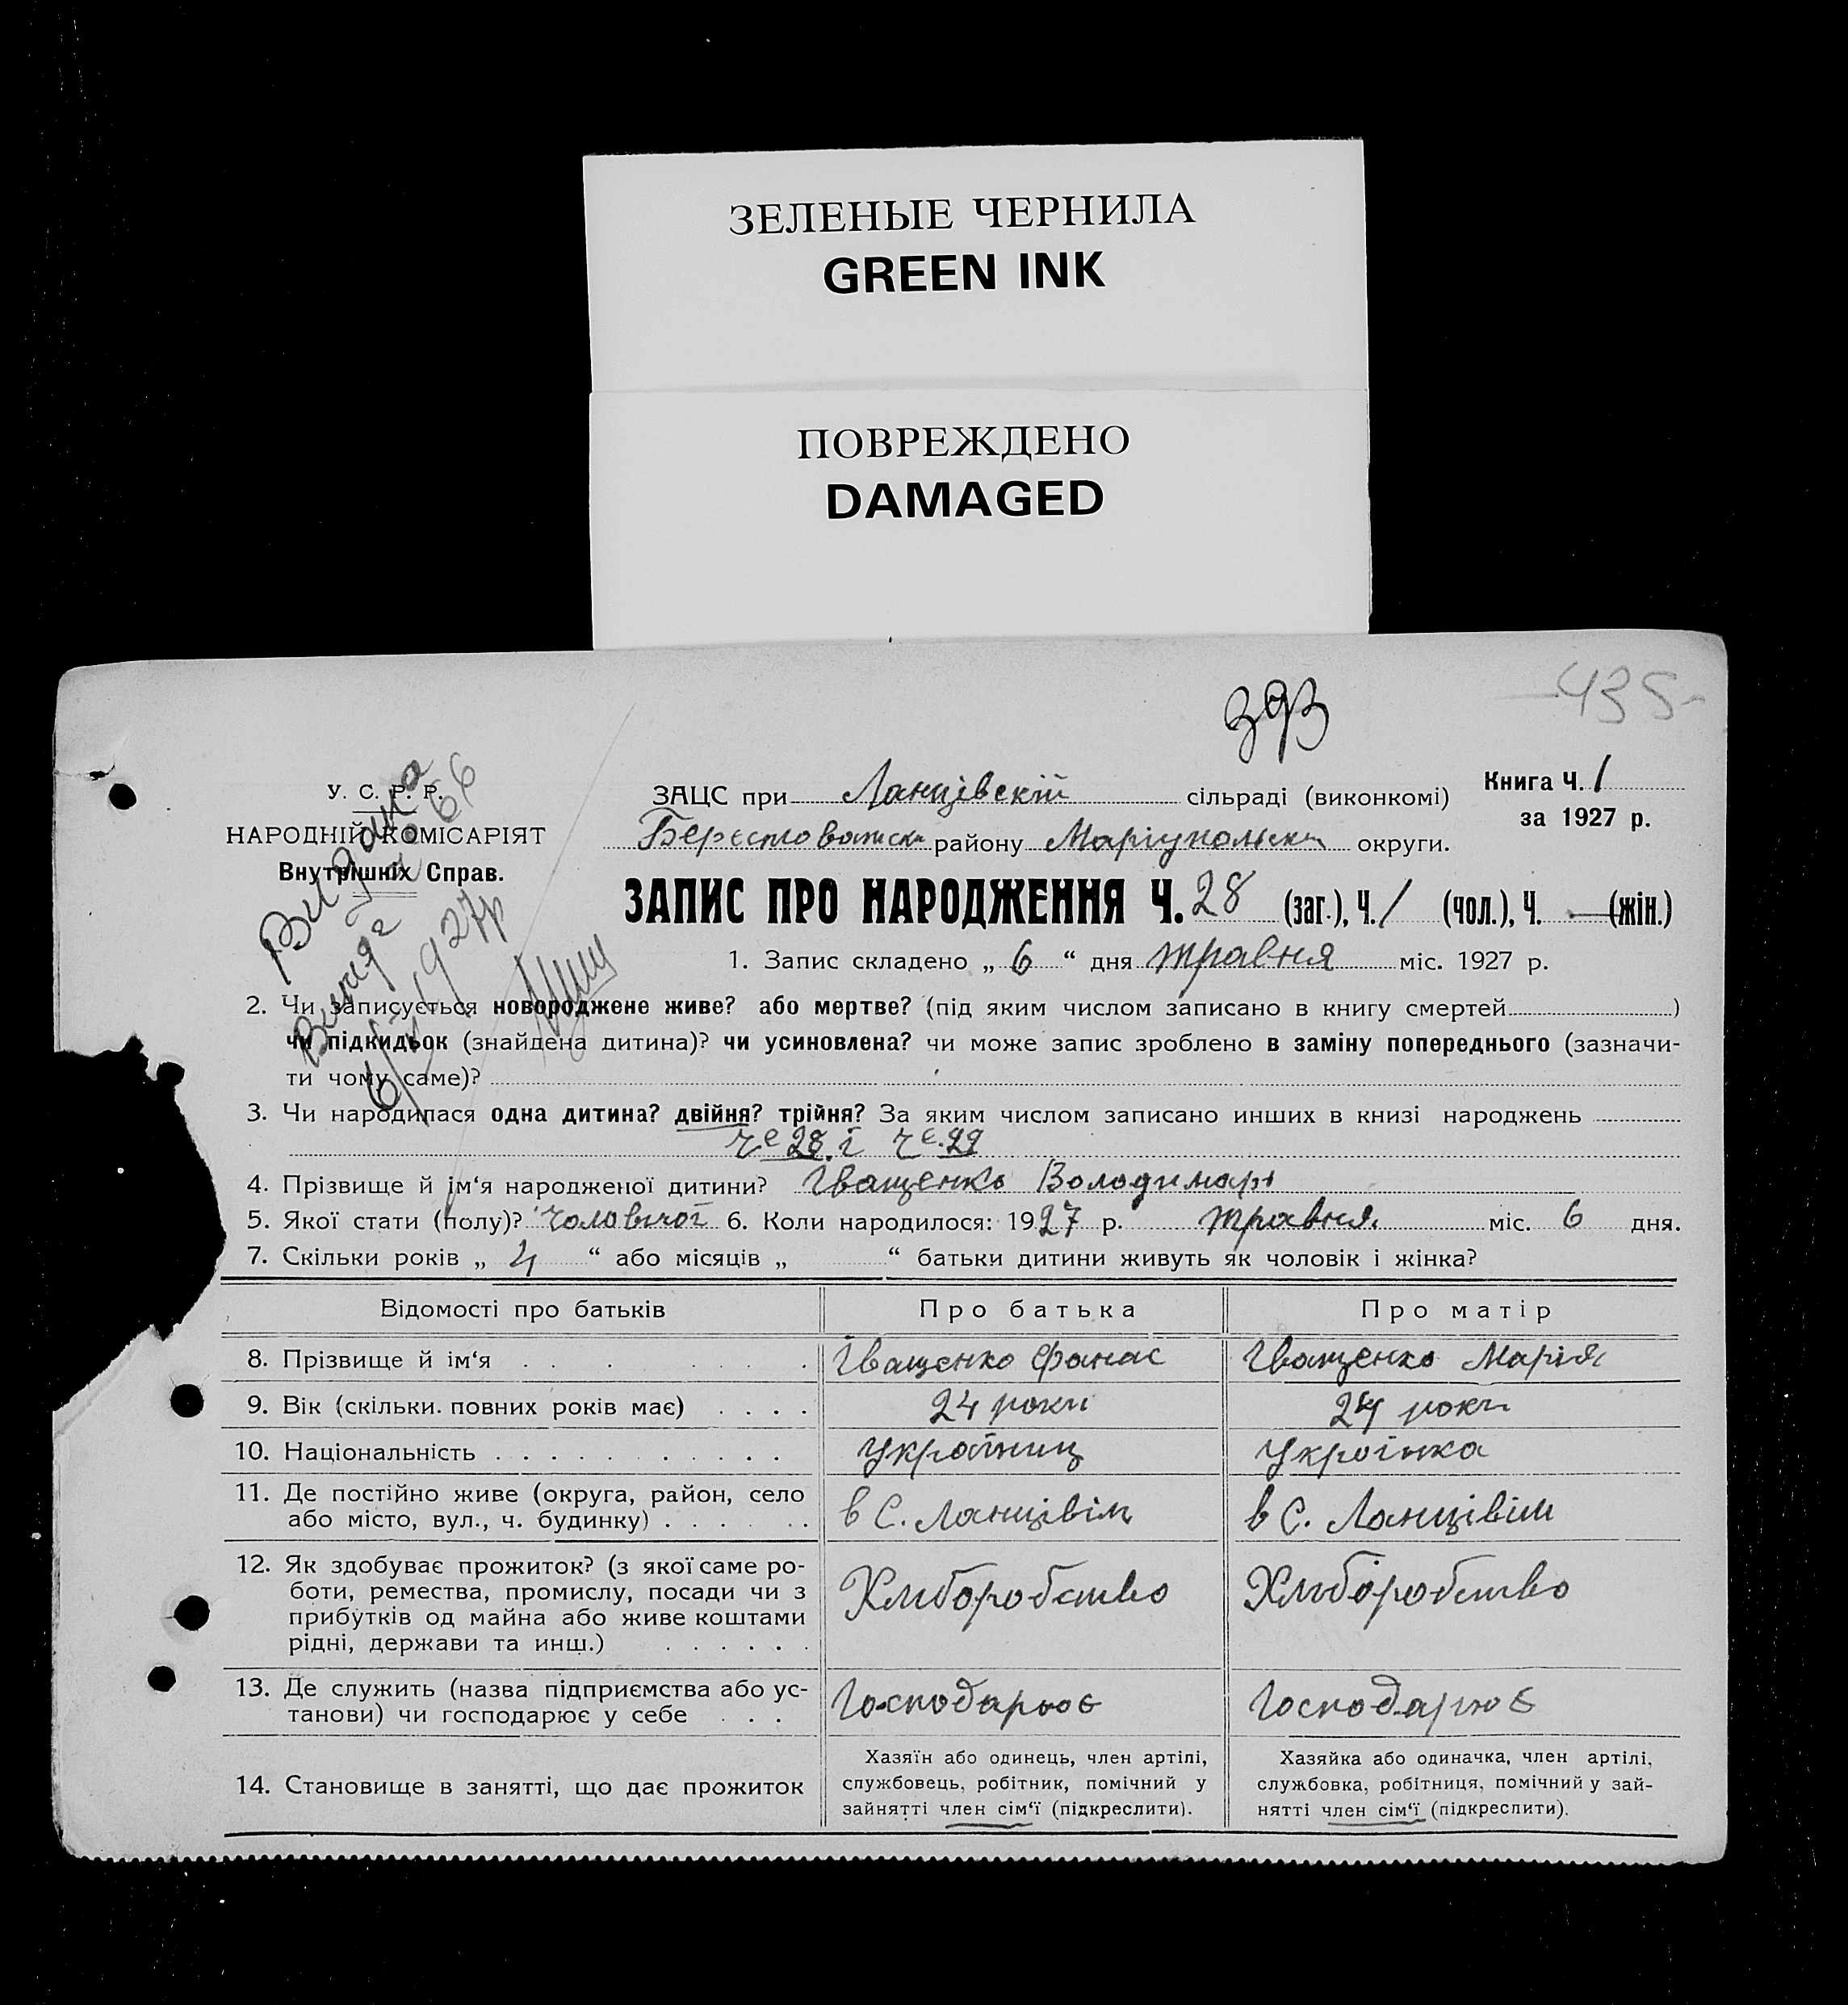 ЗЕЛЕНЫЕ ЧЕРНИЛА
GREEN INK
ПОВРЕЖДЕНО
DAMAGED
393
435
У. С. Р. Р.
НАРОДНІЙ КОМІСАРІЯТ
Внутрішніх Справ.
Видана
6/V 1927р
ЗАЦС при Ланцівскій сільраді (виконкомі)
Книга Ч. 1
за 1927 р.
району Маріупольськ округи.
ЗАПИС ПРО НАРОДЖЕННЯ Ч. 28 (заг.), Ч. 1 (чол.), Ч. — (жін.)
1. Запис складено „ 6 “ дня травня міс. 1927 р.
2. Чи записується новороджене живе? або мертве? (під яким числом записано в книгу смертей )
чи підкидьок (знайдена дитина)? чи усиновлена? чи може запис зроблено в заміну попереднього (зазначи-
ти чому саме)?
3. Чи народилася одна дитина? двійня? трійня? За яким числом записано инших в книзі народжень
28 і 29
4. Прізвище й ім‘я народженої дитини? Іващенко Володимарь
5. Якої стати (полу)? Чоловічої 6. Коли народилося: 1927 р. травня. міс. 6 дня.
7. Скільки років „ 4 “ або місяців „ “ батьки дитини живуть як чоловік і жінка?
Відомості про батьків Про батька Про матір
8. Прізвище й ім‘я Іващенко Фанас Іващенко Марія
9. Вік (скільки. повних років має) 24 роки 24 роки
10. Національність Україниц Українка
11. Де постійно живе (округа, район, село
або місто, вул., ч. будинку) в С. Ланцівім в С. Ланцівім
12. Як здобуває прожиток? (з якої саме ро-
боти, ремества, промислу, посади чи з
прибутків од майна або живе коштами
рідні, держави та инш.) Хліборобство Хліборобство
13. Де служить (назва підприємства або ус-
танови) чи господарює у себе Господарює Господарює
14. Становище в занятті, що дає прожиток
Хазяїн або одинець, член артілі,
службовець, робітник, помічний у
зайнятті член сім‘ї (підкреслити).
Хазяйка або одиначка, член артілі,
службовка, робітниця, помічний у зай-
нятті член сім‘ї (підкреслити).